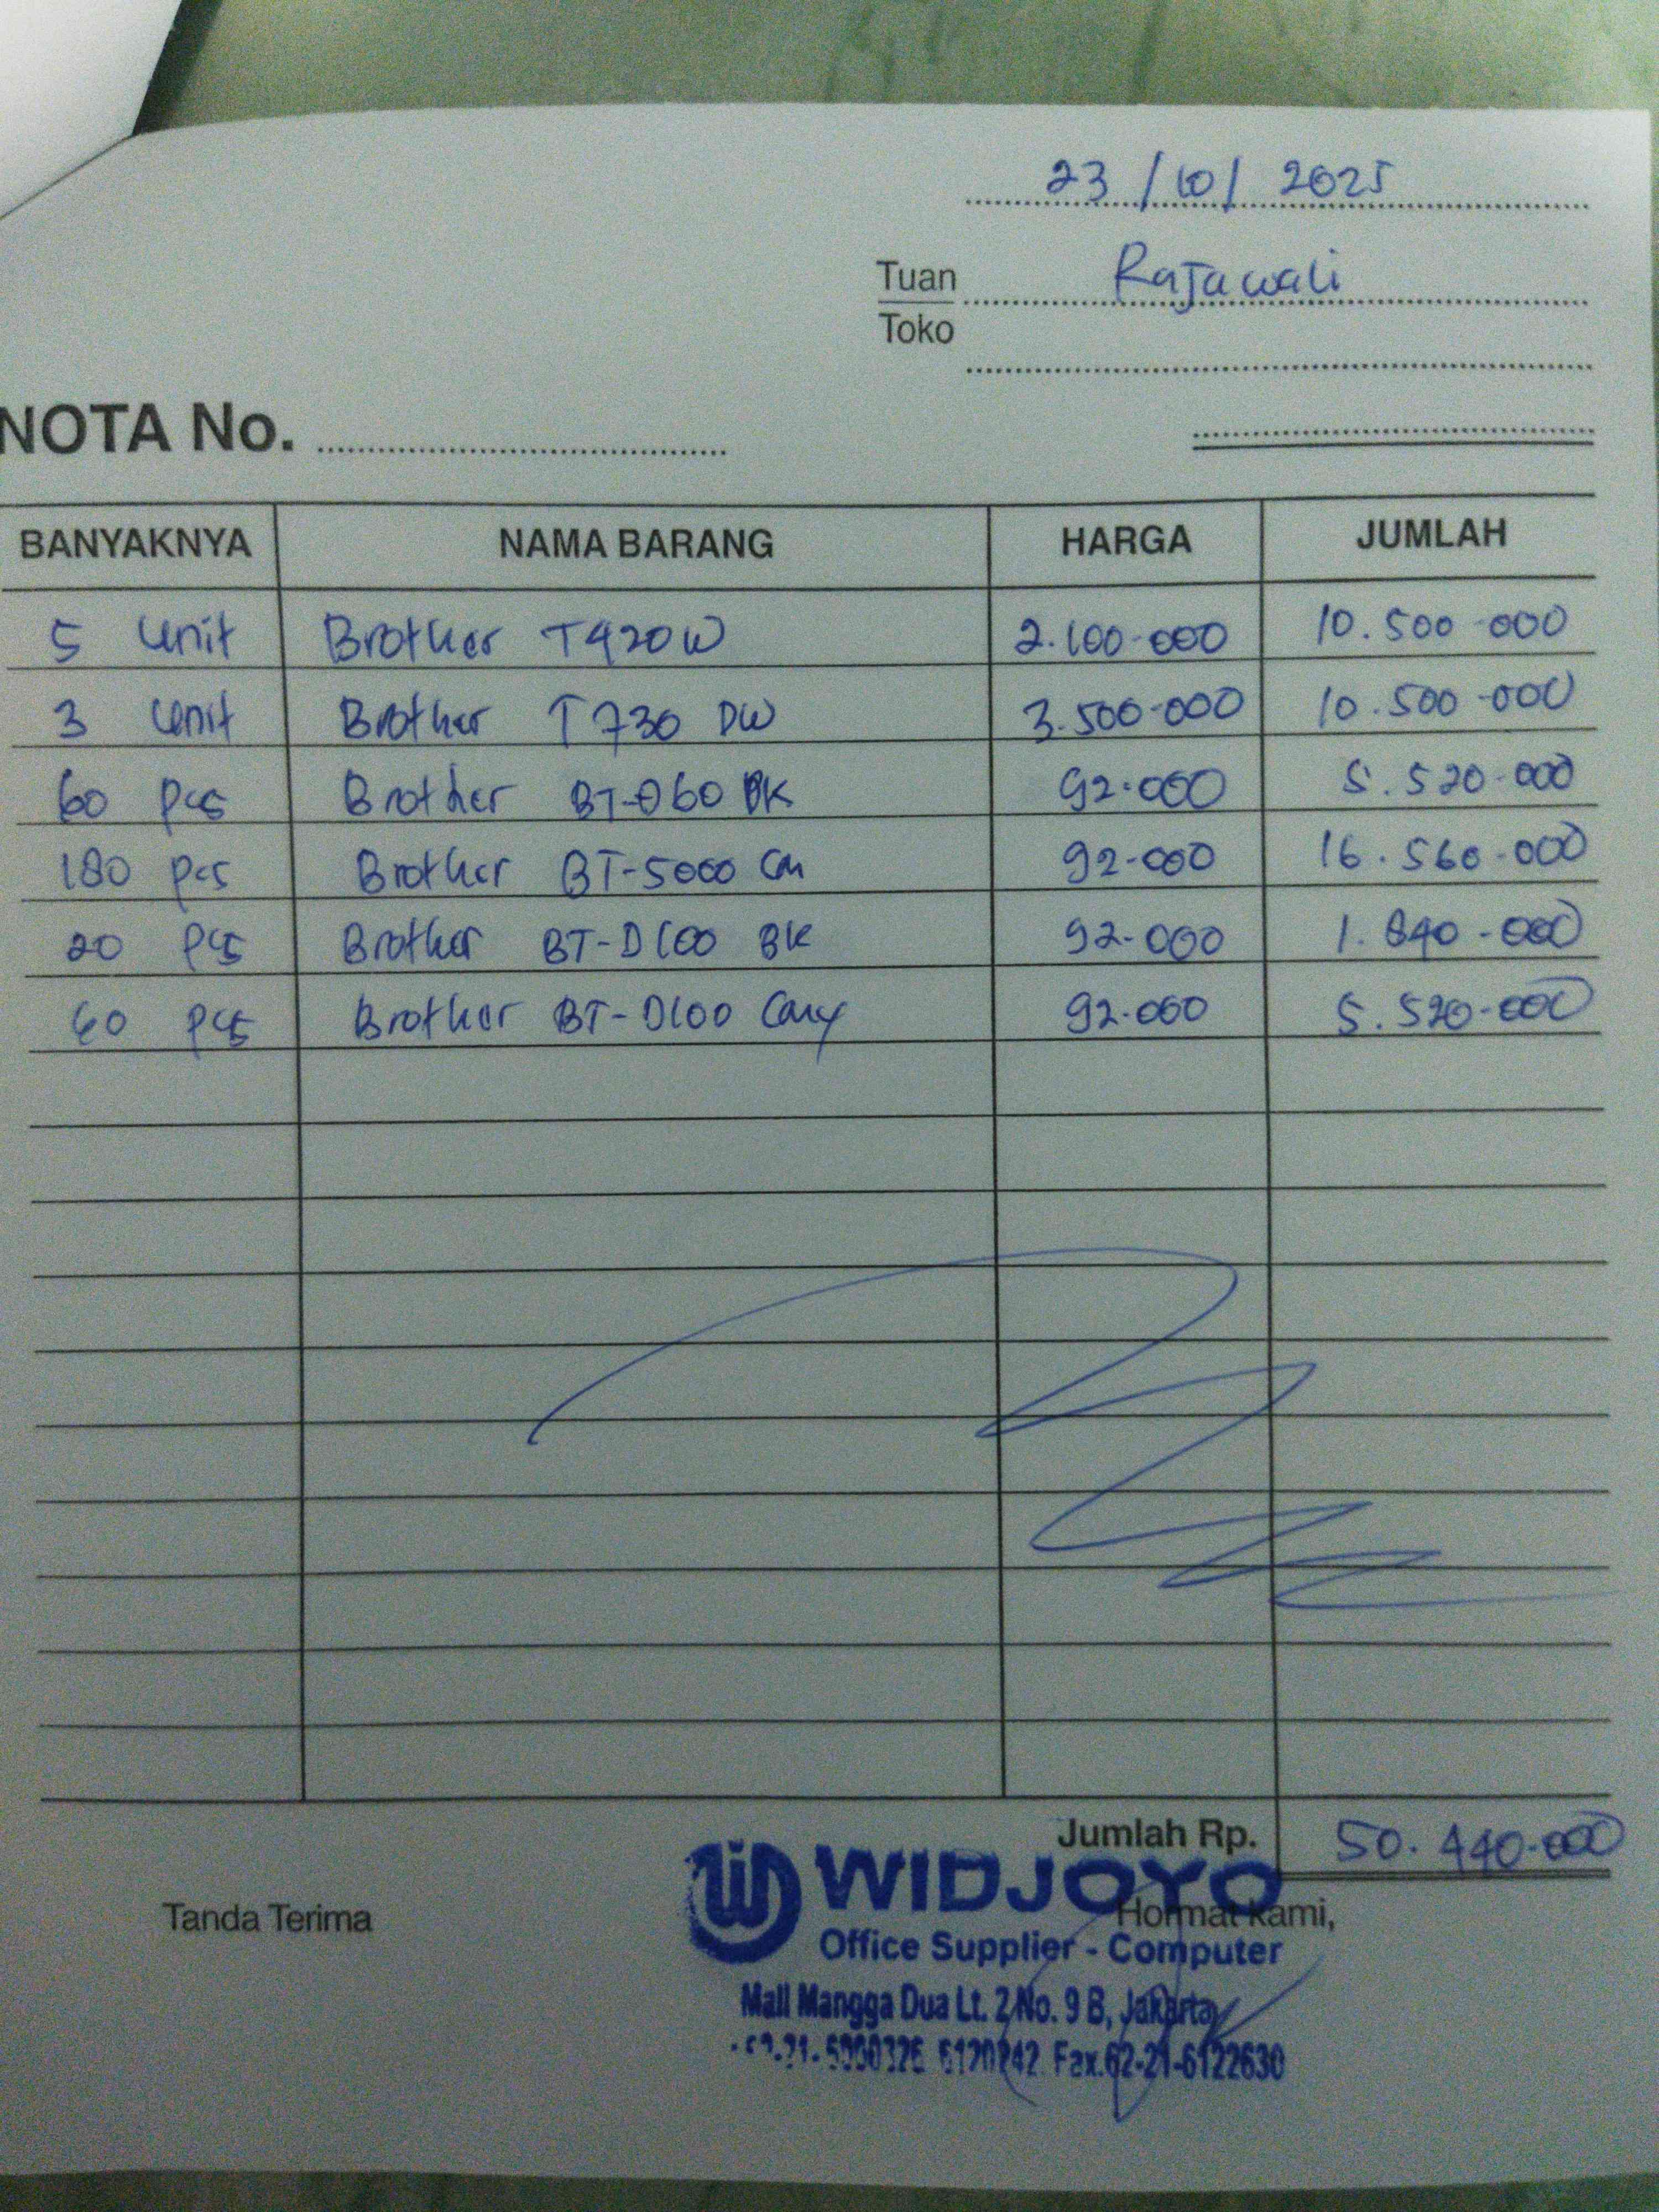 23 / 10 / 2025
Tuan Rajawali
Toko
NOTA No.
BANYAKNYA NAMA BARANG HARGA JUMLAH
5 Unit Brother T420W 2.100.000 10.500.000
3 Unit Brother T730 DW 3.500.000 10.500.000
60 pcs Brother BT-D60 BK 92.000 5.520.000
180 pcs Brother BT-5000 92.000 16.560.000
20 pcs Brother BT-D100 BK 92.000 1.840.000
60 pcs Brother BT-D100 92.000 5.520.000
Jumlah Rp. 50.440.000
Tanda Terima Hormat kami,
WIDJOYO
Office Supplier - Computer
Mall Mangga Dua Lt. 2 No. 9 B, Jakarta
Fax.62-21-6122630